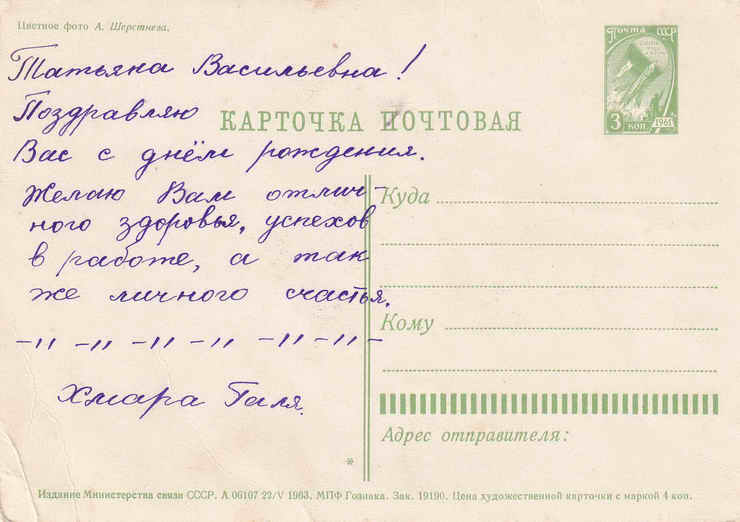 Цветное фото А. Шерстнева.
Почта СССР
3 коп 1961
Татьяна Васильевна!
Поздравляю
КАРТОЧКА ПОЧТОВАЯ
Вас с днём рождения.
Желаю Вам отлич-
ного здоровья, успехов
в работе, а так
же личного счастья.
–"–"–"–"–"–"–
Хмара Галя.
Куда
Кому
Адрес отправителя:
*
Издание Министерства связи СССР. А 06107 22/V 1963. МПФ Гознака. Зак. 19190. Цена художественной карточки с маркой 4 коп.